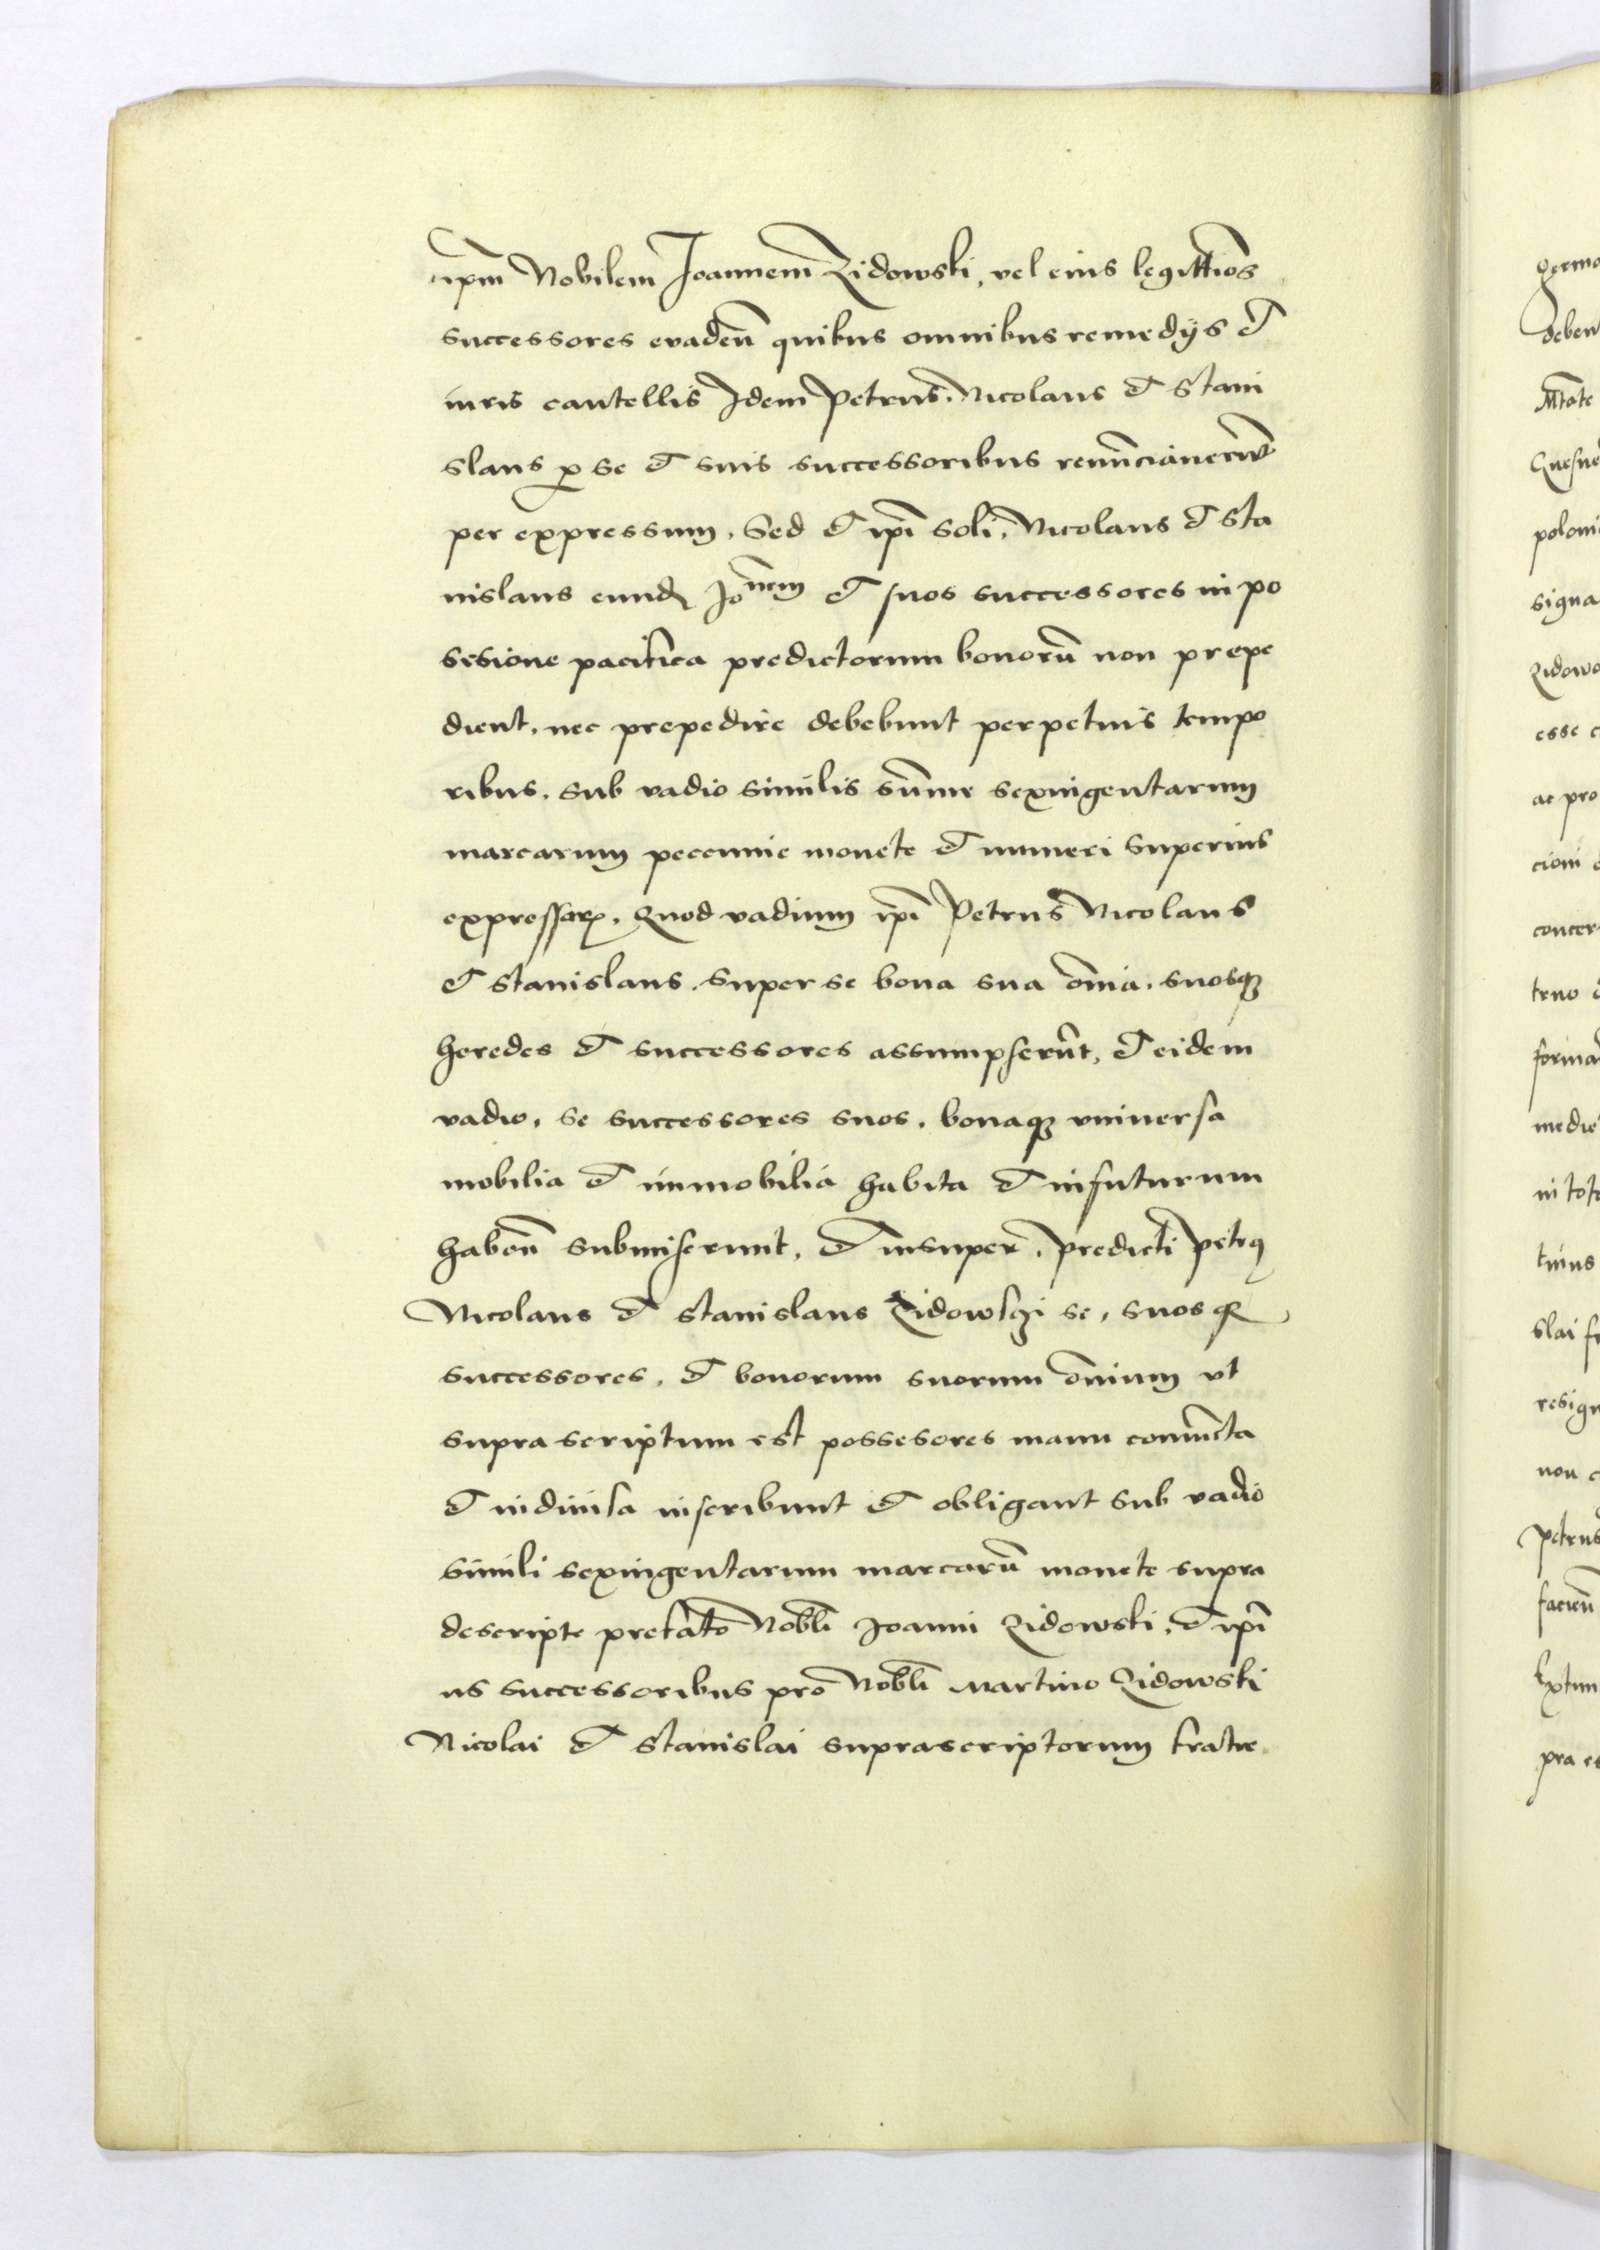 ipm Nobilem Joannem Zidowski, vel eius legittios
successores evadeñ quibus omnibus remedijs et
iuris cautellis Idem Petrus, Nicolaus et Stani
slaus p se et suis successoribus renunciaverunt
per expressum. Sed et ipi soli, Nicolaus et Sta
nislaus eund Jonem et suos successores in po
sesione pacifica predictorum bonorũ non prepe
dient, nec prepedire debebunt perpetuis tempo
ribus, sub vadio similis sum̃e sexingentarum
marcarum peccunie monete et numeri superius
expressarum. Quod vadium ipi Petrus Nicolaus
et Stanislaus, super se bona sua om̃ia, suosq
heredes et successores assumpserũt, et eidem
vadio, se successores suos, bonaq universa
mobilia et immobilia habita et in futurum
habeñ submiserunt, et insuper, predicti Petrus
Nicolaus et Stanislaus Zidowsczi se, suos q
successores, et bonorum suorum om̃ium vt
supra scriptum est possesores manu coniuncta
et indivisa inscribunt et obligant sub vadio
simili sexingentarum marcarũ monete supra
descripte prefato Nobli Joanni Zidowski, et ipi
us successoribus pro Nobli Martino Zidowski
Nicolai et Stanislai suprascriptorum fratre
germa
deben
polom
signa
esse c
ac pro
cioni
concer
forma
medie
in tot
slai fr
resign
non c
Petrus
pra es